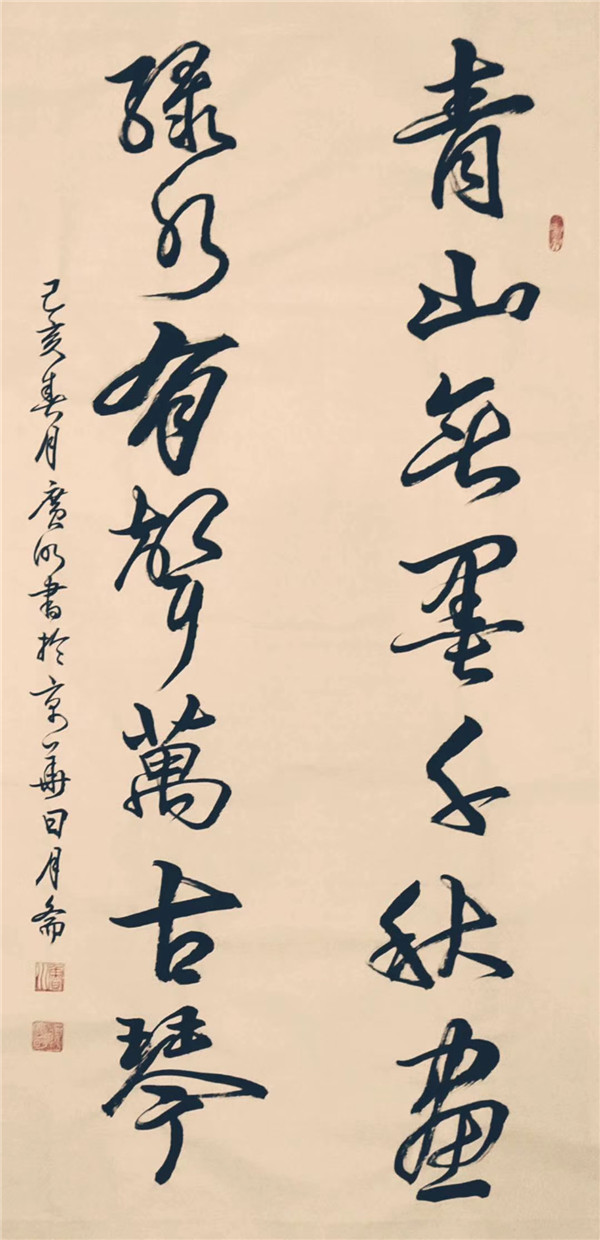 青山無墨千秋畫
綠水有聲萬古琴
己亥春月廣明書於京華日月斋